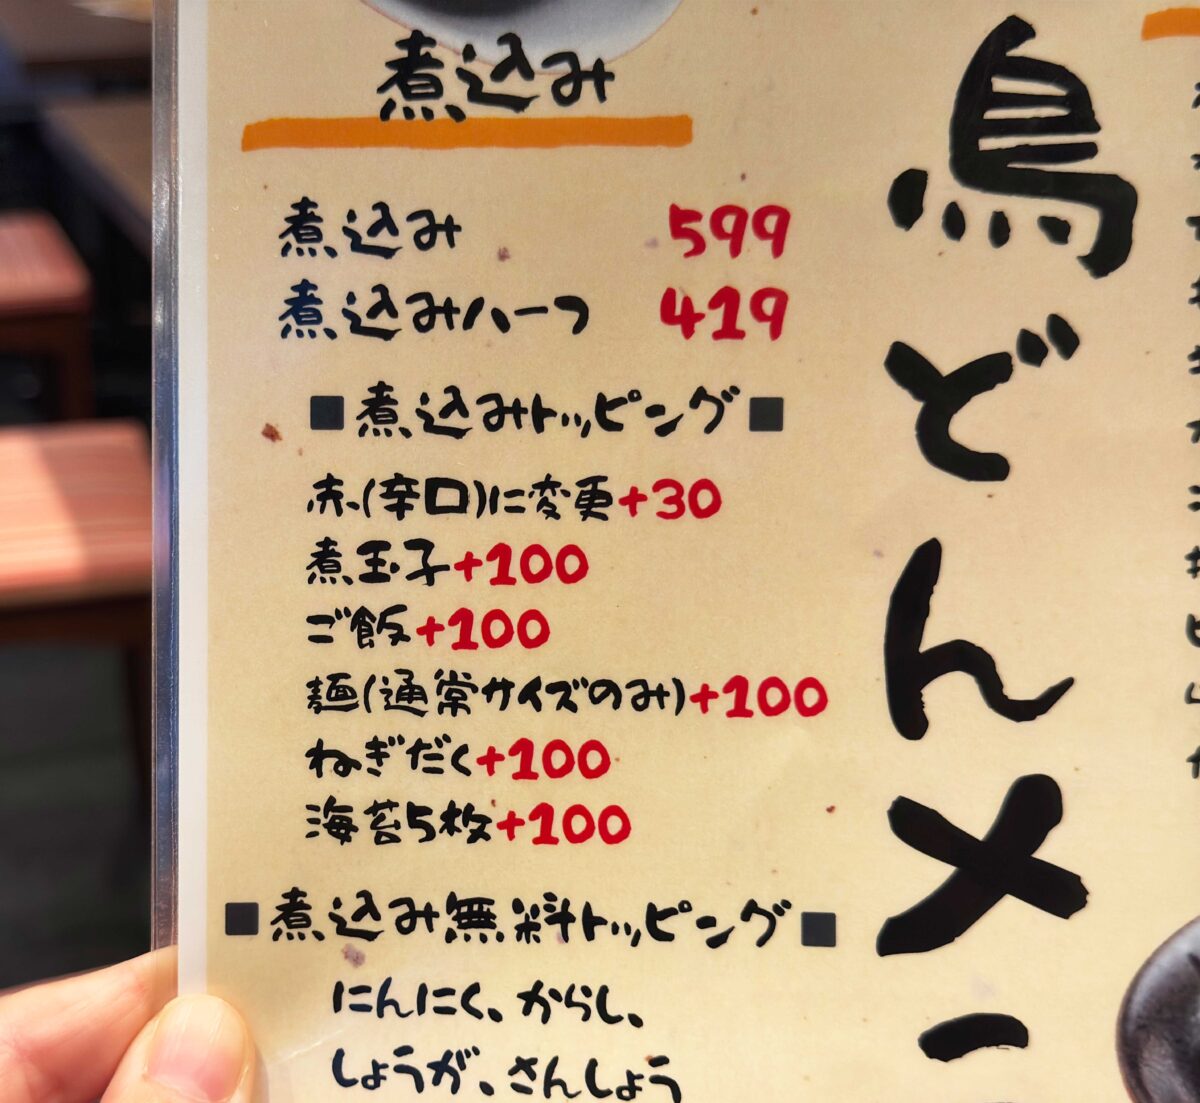 煮込み
煮込み 599
煮込みハーフ 419
■煮込みトッピング■
赤(辛口)に変更+30
煮玉子+100
ご飯+100
麺(通常サイズのみ)+100
ねぎだく+100
海苔5枚+100
■煮込み無料トッピング■
にんにく、からし、
しょうが、さんしょう
鳥どんメニ